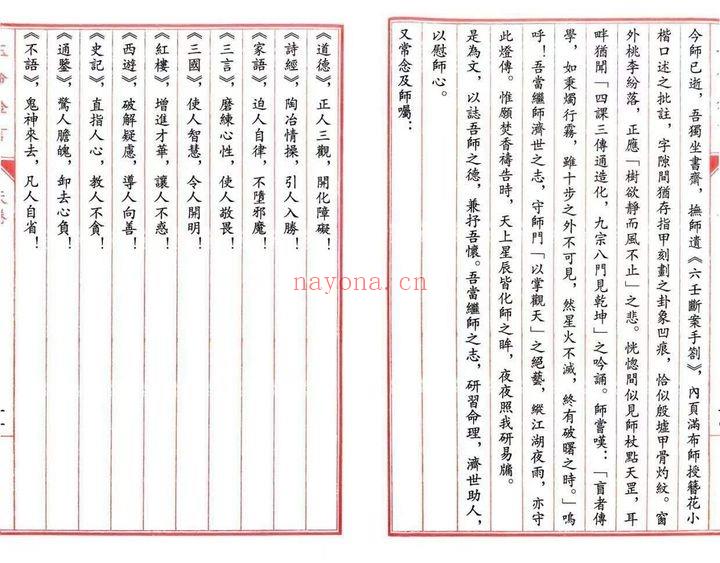 今師已逝，吾獨坐書齋，撫師遺《六壬斷案手劄》，內頁滿布師授簪花小
楷口述之批註，字隙間猶存指甲刻劃之卦象凹痕，恰似殷墟甲骨灼紋。窗
外桃李紛落，正應「樹欲靜而風不止」之悲。恍惚間似見師杖點天罡，耳
畔猶聞「四課三傳通造化，九宗八門見乾坤」之吟誦。師嘗嘆：「盲者傳
學，如秉燭行霧，雖十步之外不可見，然星火不滅，終有破曙之時。」嗚
呼！吾當繼師濟世之志，守師門「以掌觀天」之絕藝，縱江湖夜雨，亦守
此燈傳。惟願焚香禱告時，天上星辰皆化師之眸，夜夜照我研易牖。
是為文，以誌吾師之德，兼抒吾懷。吾當繼師之志，研習命理，濟世助人，
以慰師心。
又常念及師囑：
《道德》，正人三觀，開化障礙！
《詩經》，陶冶情操，引人入勝！
《家語》，迫人自律，不墮邪魔！
《三言》，磨練心性，使人敬畏！
《三國》，使人智慧，令人開明！
《紅樓》，增進才華，讓人不惑！
《西遊》，破解疑慮，導人向善！
《史記》，直指人心，教人不貪！
《通鑒》，驚人膽魄，卸去心負！
《不語》，鬼神來去，凡人自省！
nayona.cn